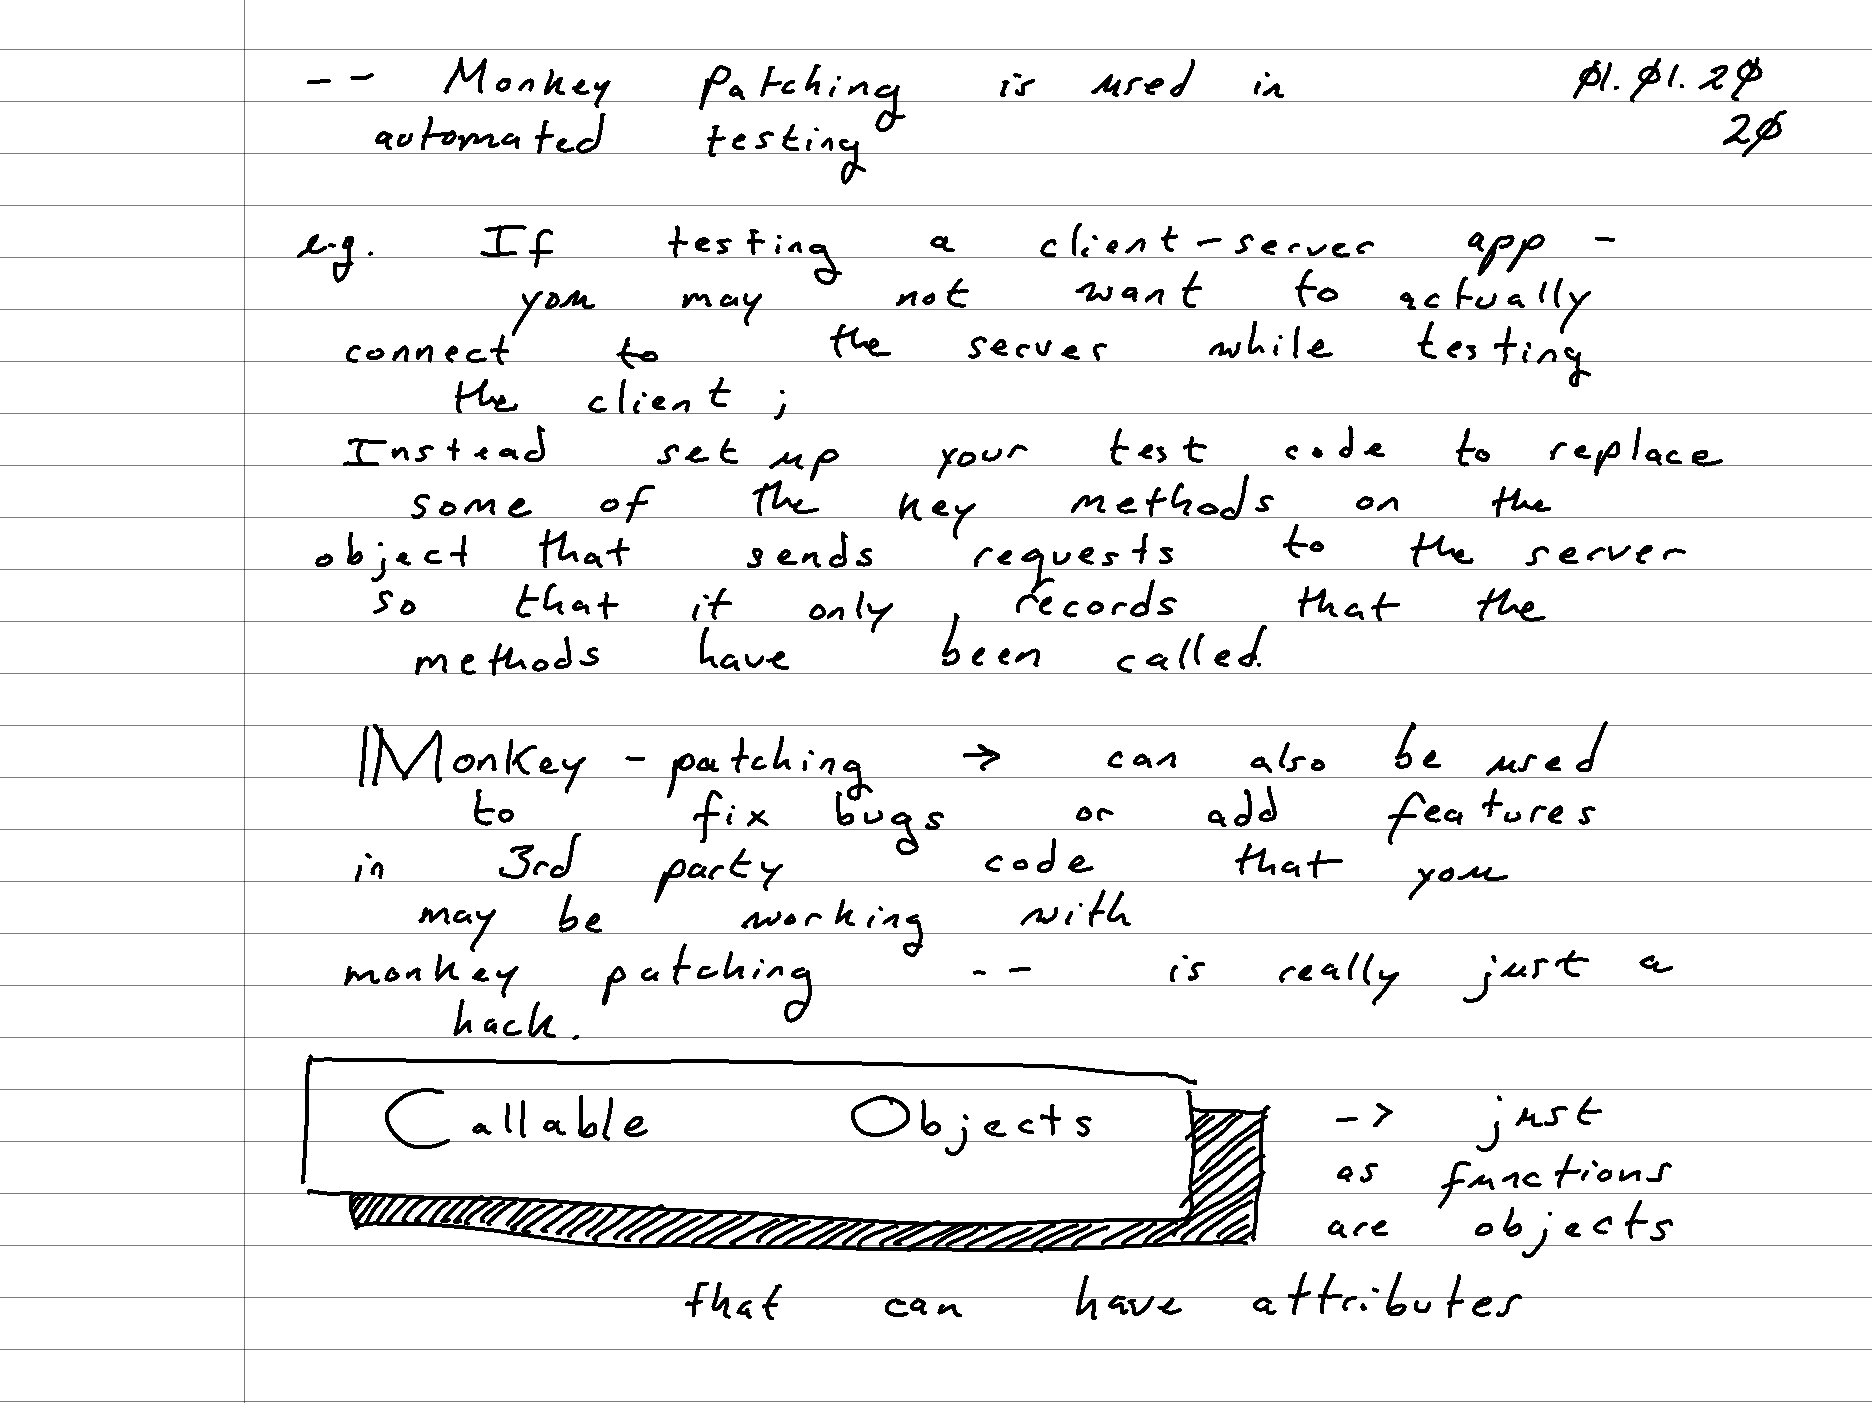 -- Monkey Patching is used in 01.01.20
automated testing 20
e.g. If testing a client-server app -
you may not want to actually
connect to the server while testing
the client ;
Instead set up your test code to replace
some of the key methods on the
object that sends requests to the server
so that it only records that the
methods have been called.
Monkey - patching → can also be used
to fix bugs or add features
in 3rd party code that you
may be working with
monkey patching -- is really just a
hack.
Callable Objects -> just
as functions
are objects
that can have attributes